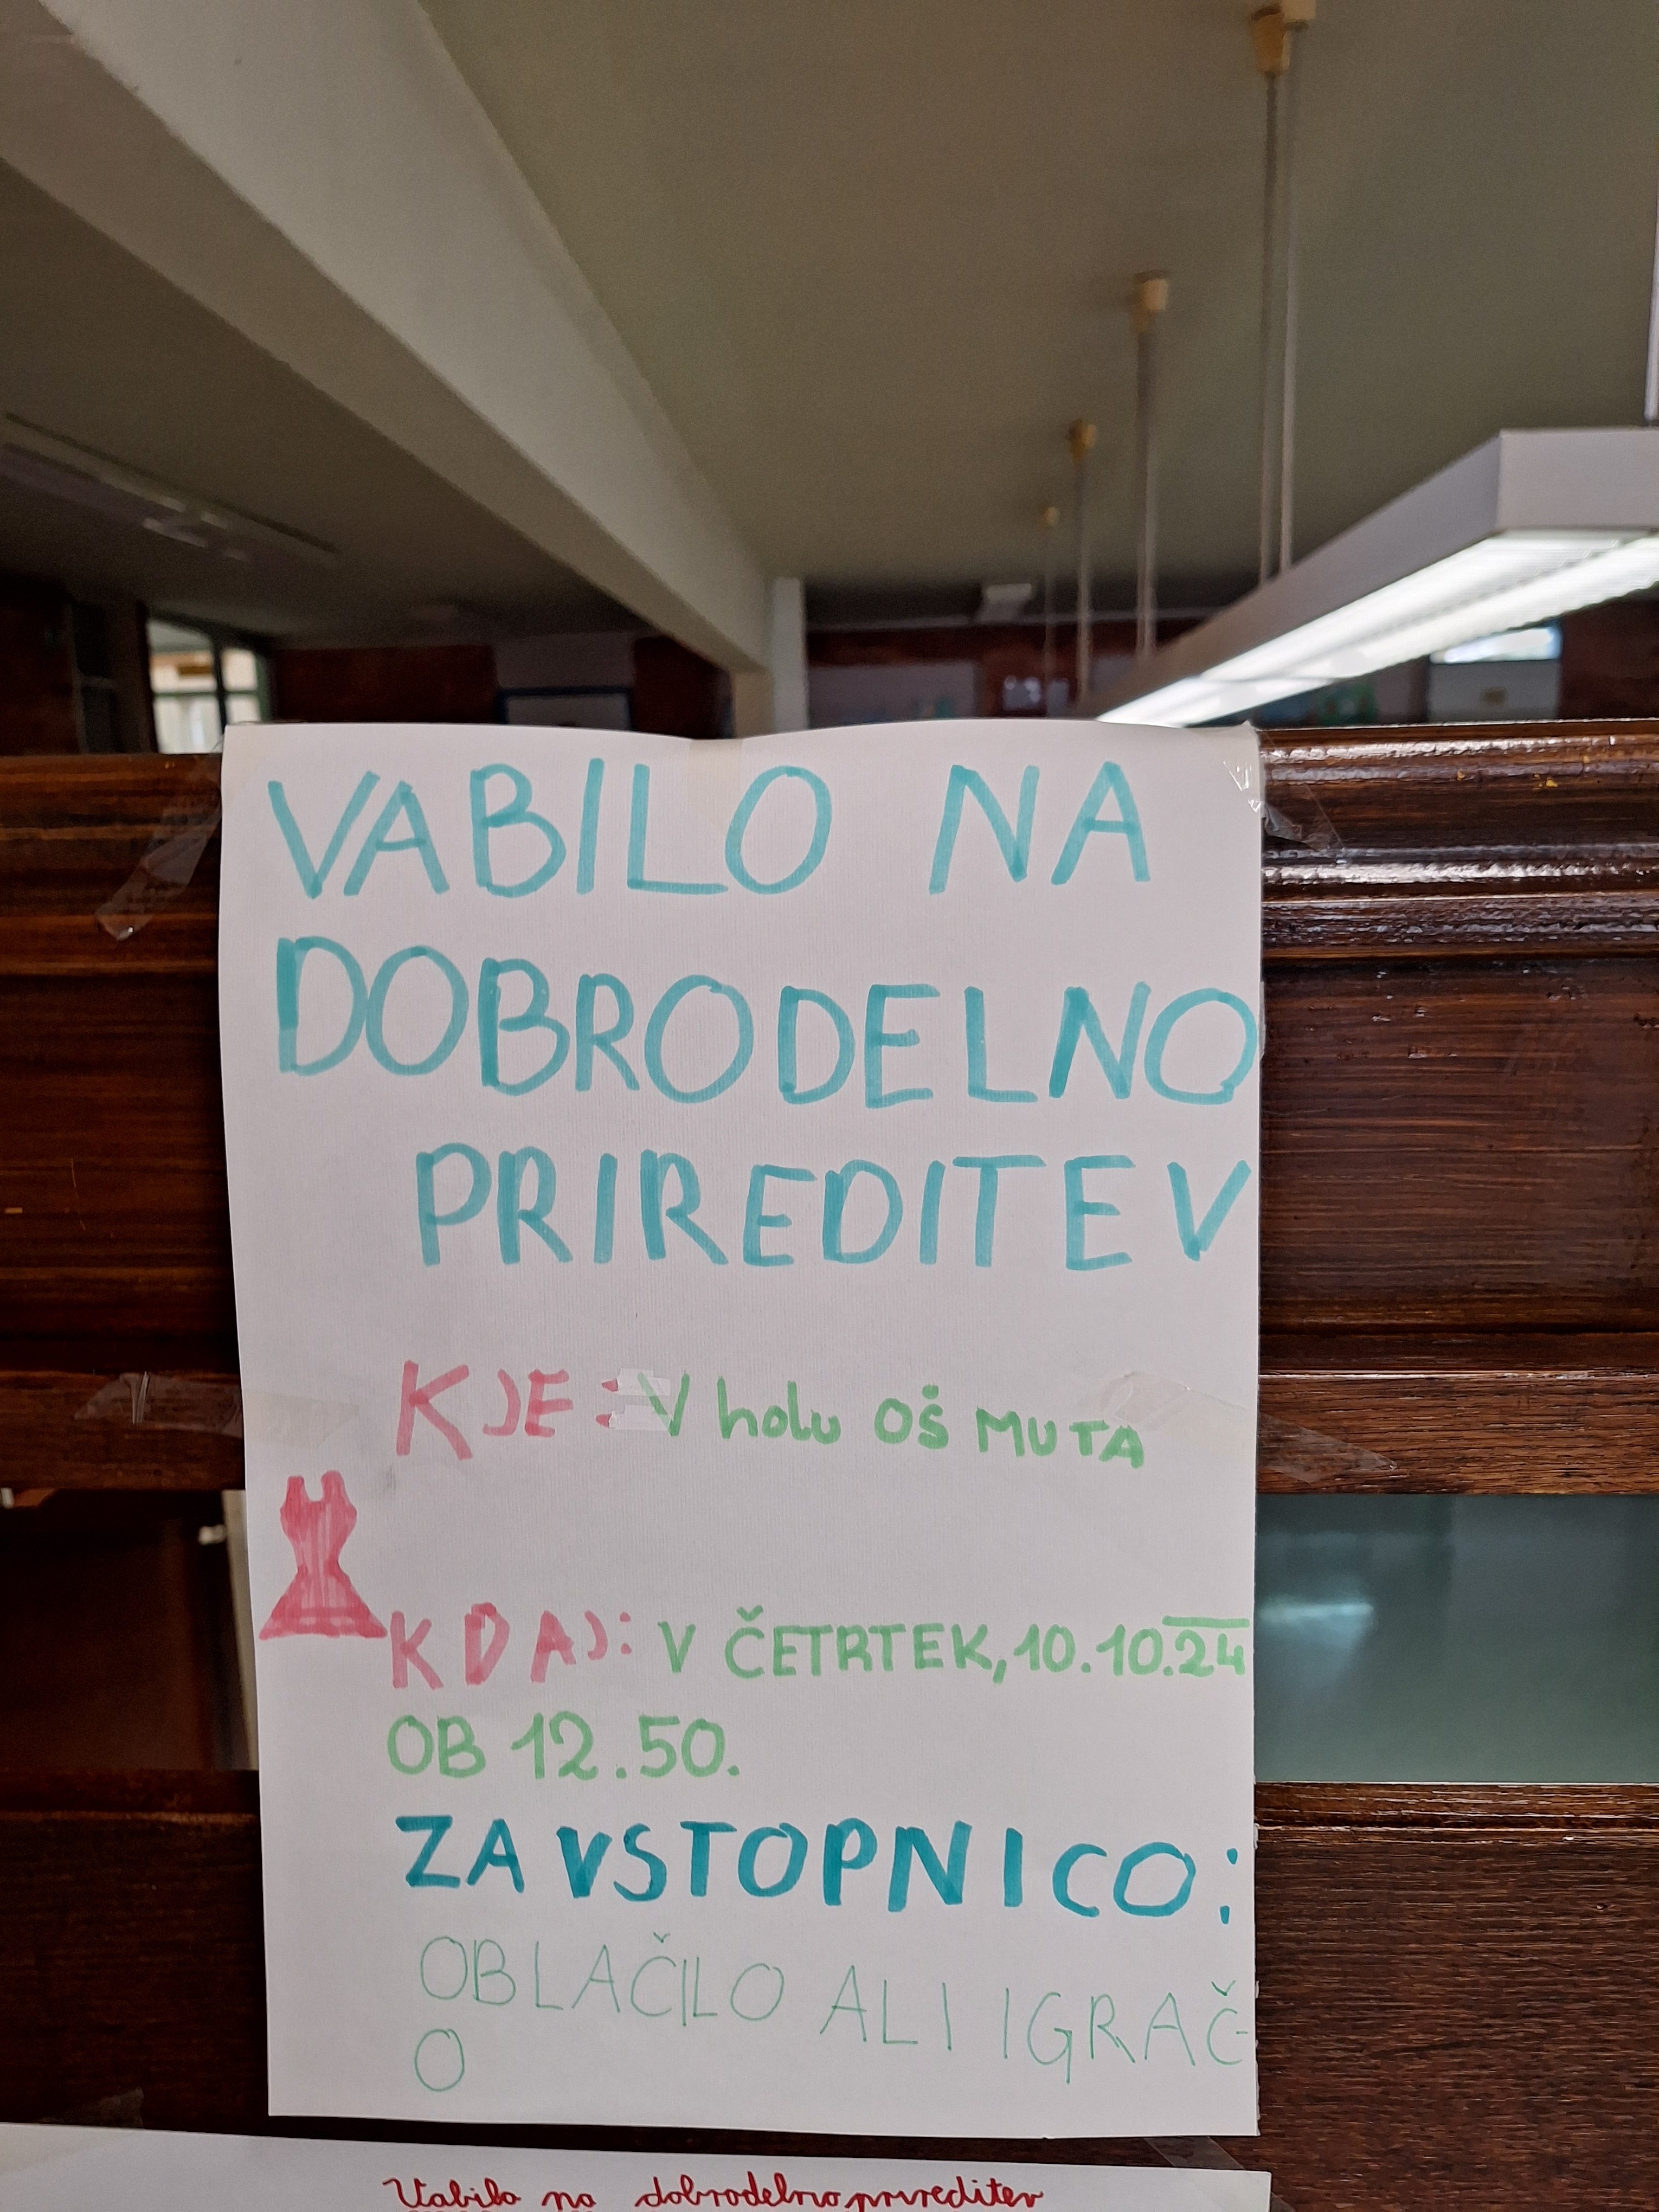 VABILO NA
DOBRODELNO
PRIREDITEV
KJE: V holu OŠ MUTA
KDAJ: V ČETRTEK, 10.10.24
OB 12.50.
ZA VSTOPNICO:
OBLAČILO ALI IGRAČ-
O
Vabilo na dobrodelno prireditev